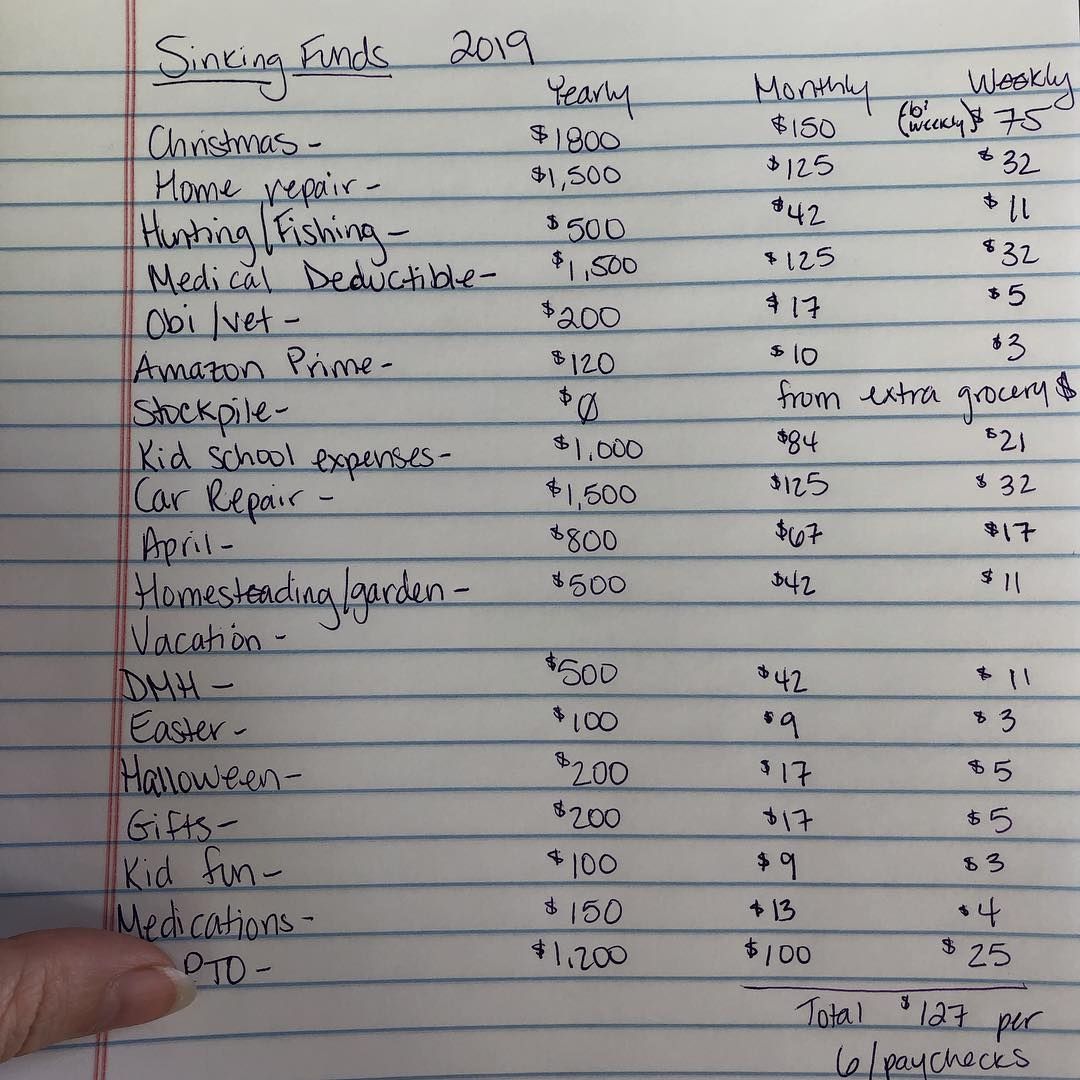 Sinking Funds 2019
Yearly Monthly Weekly
Christmas - $1800 $150 (bi weekly) $75
Home repair - $1,500 $125 $32
Hunting/Fishing - $500 $42 $11
Medical Deductible - $1,500 $125 $32
Obi/vet - $200 $17 $5
Amazon Prime - $120 $10 $3
Stockpile - $0 from extra grocery $
Kid school expenses - $1,000 $84 $21
Car Repair - $1,500 $125 $32
April - $800 $67 $17
Homesteading/garden - $500 $42 $11
Vacation -
DMH - $500 $42 $11
Easter - $100 $9 $3
Halloween - $200 $17 $5
Gifts - $200 $17 $5
Kid fun - $100 $9 $3
Medications - $150 $13 $4
PTO - $1,200 $100 $25
Total $127 per
6/paychecks